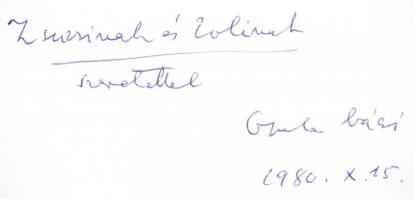 Zsuzsinak és Zolinak
szeretettel
Gyula bácsi
1980. X. 15.